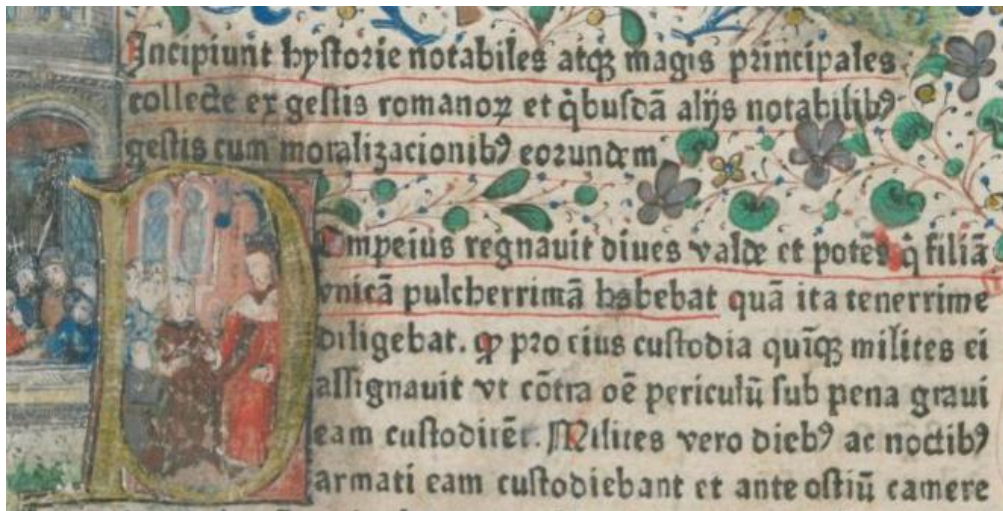 Incipiunt hystorie notabiles atqꝫ magis principales
collecte ex gestis romanoꝝ et q̇busdā alijs notabilibꝰ
gestis cum moralizacionibꝰ eorundem
Pompeius regnauit diues valde et potēs q̇ filiā
vnicā pulcherrimā habebat quā ita tenerrime
diligebat. ꝙ pro eius custodia quīqꝫ milites ei
assignauit vt cōtra oē periculū sub pena graui
eam custodirēt. Milites vero diebꝰ ac noctibꝰ
armati eam custodiebant et ante ostiū camere